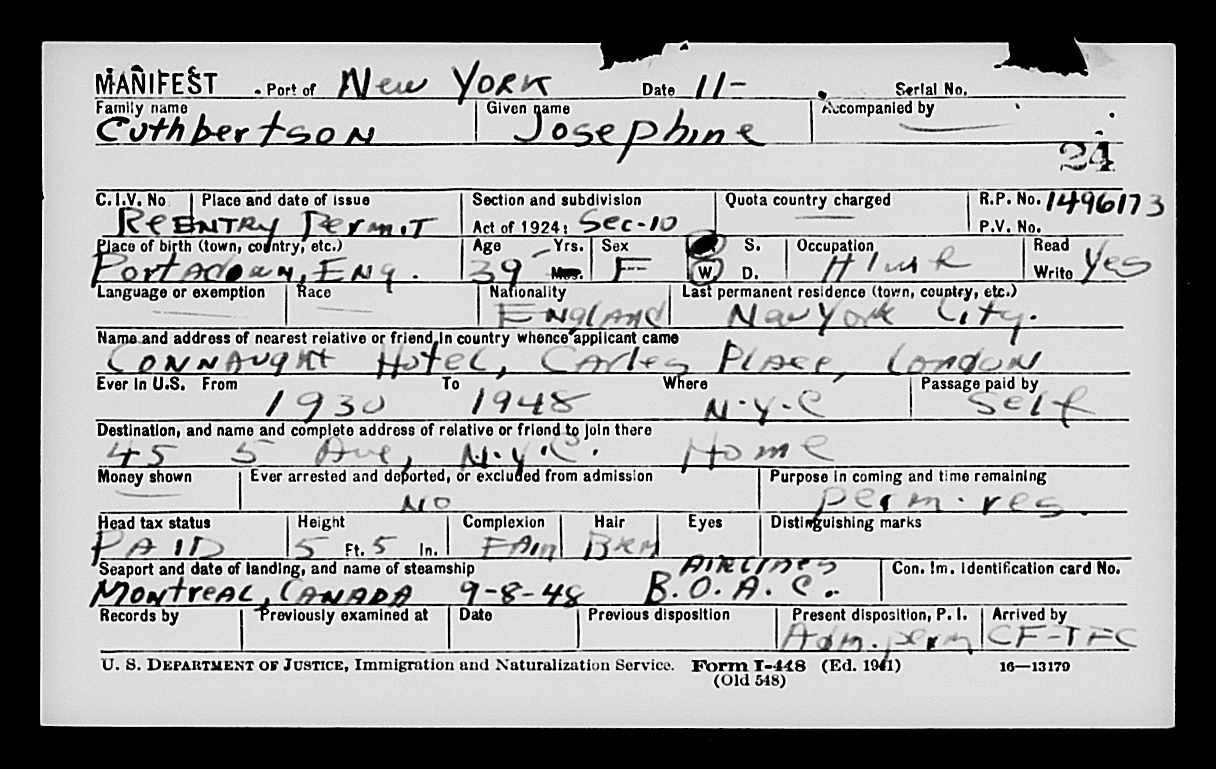 MANIFEST Port of New York Date 11- Serial No.
Family name Given name Accompanied by
Cuthbertson Josephine
24
C.I.V. No. Place and date of issue Section and subdivision Quota country charged R.P. No. 1496173
Reentry Permit Act of 1924: Sec-10 P.V. No.
Place of birth (town, country, etc.) Age Yrs. Sex S. Occupation Read
Portadown, Eng. 39 Mos. F W. D. H/wife Write Yes
Language or exemption Race Nationality Last permanent residence (town, country, etc.)
England New York City.
Name and address of nearest relative or friend in country whence applicant came
Connaught Hotel, Carles Place, London
Ever in U.S. From To Where Passage paid by
1930 1948 N.Y.C Self
Destination, and name and complete address of relative or friend to join there
45 5 Ave, N.Y.C. Home
Money shown Ever arrested and deported, or excluded from admission Purpose in coming and time remaining
No perm. res.
Head tax status Height Complexion Hair Eyes Distinguishing marks
PAID 5 Ft. 5 In. Brn
Seaport and date of landing, and name of steamship Airlines Con. Im. Identification card No.
Montreal, Canada 9-8-48 B.O.A.C.
Records by Previously examined at Date Previous disposition Present disposition, P. I. Arrived by
Adm. perm CF-TFC
U. S. DEPARTMENT OF JUSTICE, Immigration and Naturalization Service. Form I-448 (Ed. 1941) 16—13179
(Old 548)